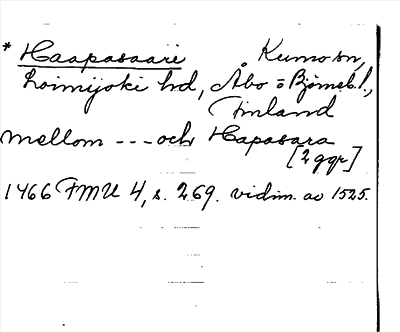 * Haapasaari Kumo sn,
Loimijoki hd, Åbo o Björneb. l.,
Finland
mellom --- och Hapasara
[2 ggr]
1466 FMU 4, s. 269. vidim. av 1525.